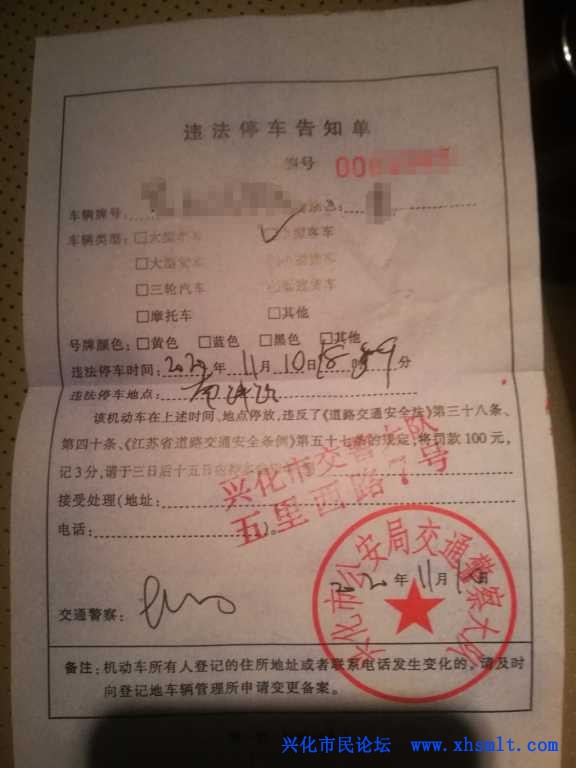 违法停车告知单
编号 00
车辆牌号:
车辆类型: □大型客车 客车
□大型货车
□三轮汽车
□摩托车 □其他
号牌颜色: □黄色 □蓝色 □黑色 □其他
违法停车时间: 年 11月10日18时 分
违法停车地点:
该机动车在上述时间、地点停放,违反了《道路交通安全法》第三十八条、
第四十条、《江苏省道路交通安全条例》第五十七条的规定,将罚款100元,
记3分,请于三日后十五日内
接受处理(地址:
电话: )。
兴化市交警大队
五里西路7号
年11月 日
交通警察:
兴化市公安局交通警察大队
备注:机动车所有人登记的住所地址或者联系电话发生变化的,请及时
向登记地车辆管理所申请变更备案。
兴化市民论坛 www.xhsmlt.com